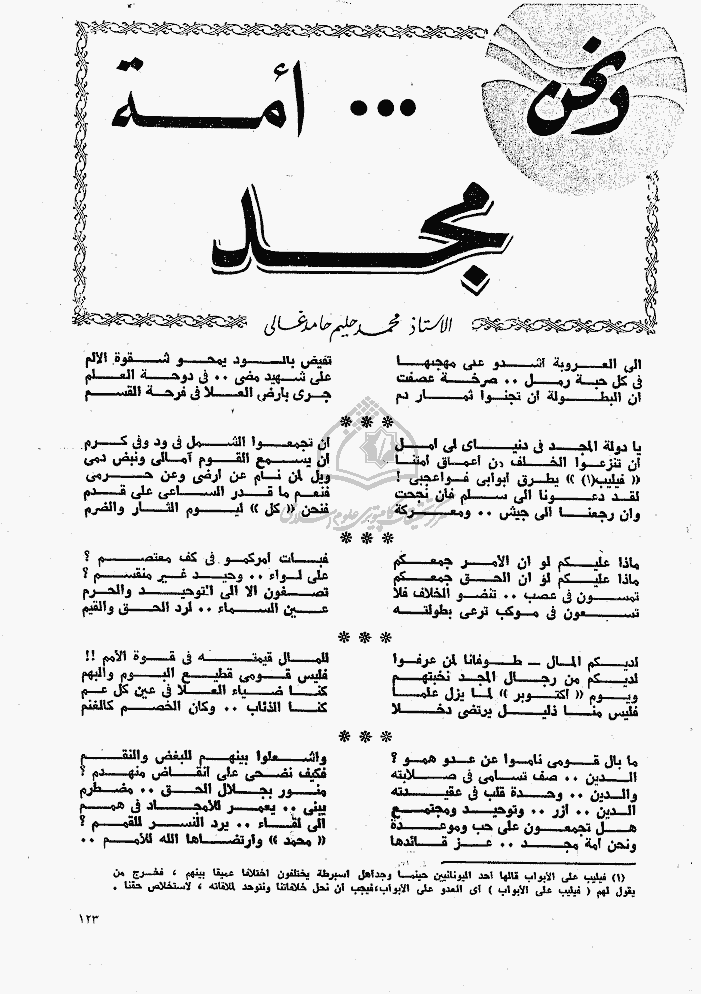 ونحن
... أمة
مجد
الاستاذ محمد حليم حامد غالى
الى العروبة اشدو على مهجتها تفيض بالود يمحو شقوة الألم
فى كل حبة رمل .. صرخة عصفت على شهيد مضى .. فى دوحة العلم
ان البطولة ان تجنوا ثمار دم جرى بأرض العلا فى فرحة القسم
***
يا دولة المجد فى دنياى لى أمل ان تجمعوا الشمل فى ود وفى كرم
أن تنزعوا الخلف من أعماق أمتنا أن يسمع القوم آمالى ونبض دمى
« فيليب(١) » يطرق أبوابى فواعجبى ! ويل لمن نام عن أرضى وعن حرمى
لقد دعونا الى سلم فان نجحت فنعم ما قدر الساعى على قدم
وان رجعنا الى جيش .. ومعركة فنحن « كل » ليوم الثار والضرم
***
ماذا عليكم لو ان الأمر جمعكم فبات أمركمو فى كف معتصم ؟
ماذا عليكم لو ان الحق جمعكم على لواء .. وحيد غير منقسم ؟
تمسون فى عصب .. تنضو الخلاف فلا تصغون الا الى التوحيد والحرم
تسعون فى موكب ترعى بطولته عين السماء .. لرد الحق والقيم
***
لديكم المال ــ طوفانا لمن عرفوا للمال قيمته فى قوة الأمم !!
لديكم من رجال المجد نخبتهم فليس قومى قطيع البوم والبهم
ويوم « أكتوبر » لما يزل علما كنا ضياء العلا فى عين كل عم
فليس منا ذليل يرتضى دخلا كنا الذئاب .. وكان الخصم كالغنم
***
ما بال قومى ناموا عن عدو همو ؟ واشعلوا بينهم للبغض والنقم
الدين .. صف تسامى فى صلابته فكيف نضحى على انقاض منهدم ؟
والدين .. وحدة قلب فى عقيدته منور بجلال الحق .. مضطرم
الدين .. أزر .. وتوحيد ومجتمع يبنى .. يعمر للأمجاد فى همم
هل تجمعون على حب وموعدة الى لقاء .. يرد النسر للقمم ؟
ونحن أمة مجد .. عز قائدها « محمد » وارتضاها الله للأمم ..
(١) فيليب على الأبواب قالها أحد اليونانيين حينما وجد أهل اسبرطة يختلفون اختلافا عميقا بينهم ، فخرج من
يقول لهم ( فيليب على الأبواب ) أى العدو على الأبواب، فيجب أن نحل خلافاتنا ونتوحد لملاقاته ، لاستخلاص حقنا .
١٢٣